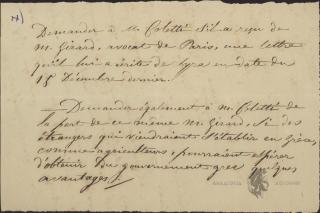 Demander à M. Coletti s'il a reçu de
M. Girard, avocat de Paris, une lettre
qu'il lui a écrite de Syra en date du
15 Décembre dernier.
Demander également à M. Coletti de
la part de ce même M. Girard, si des
étrangers qui viendraient s'établir en Grèce,
comme agriculteurs, pourraient espérer
d'obtenir du gouvernement grec quelques
avantages.